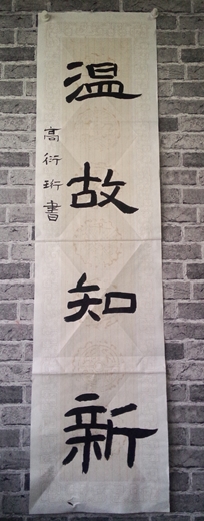 温故知新
高衍珩書